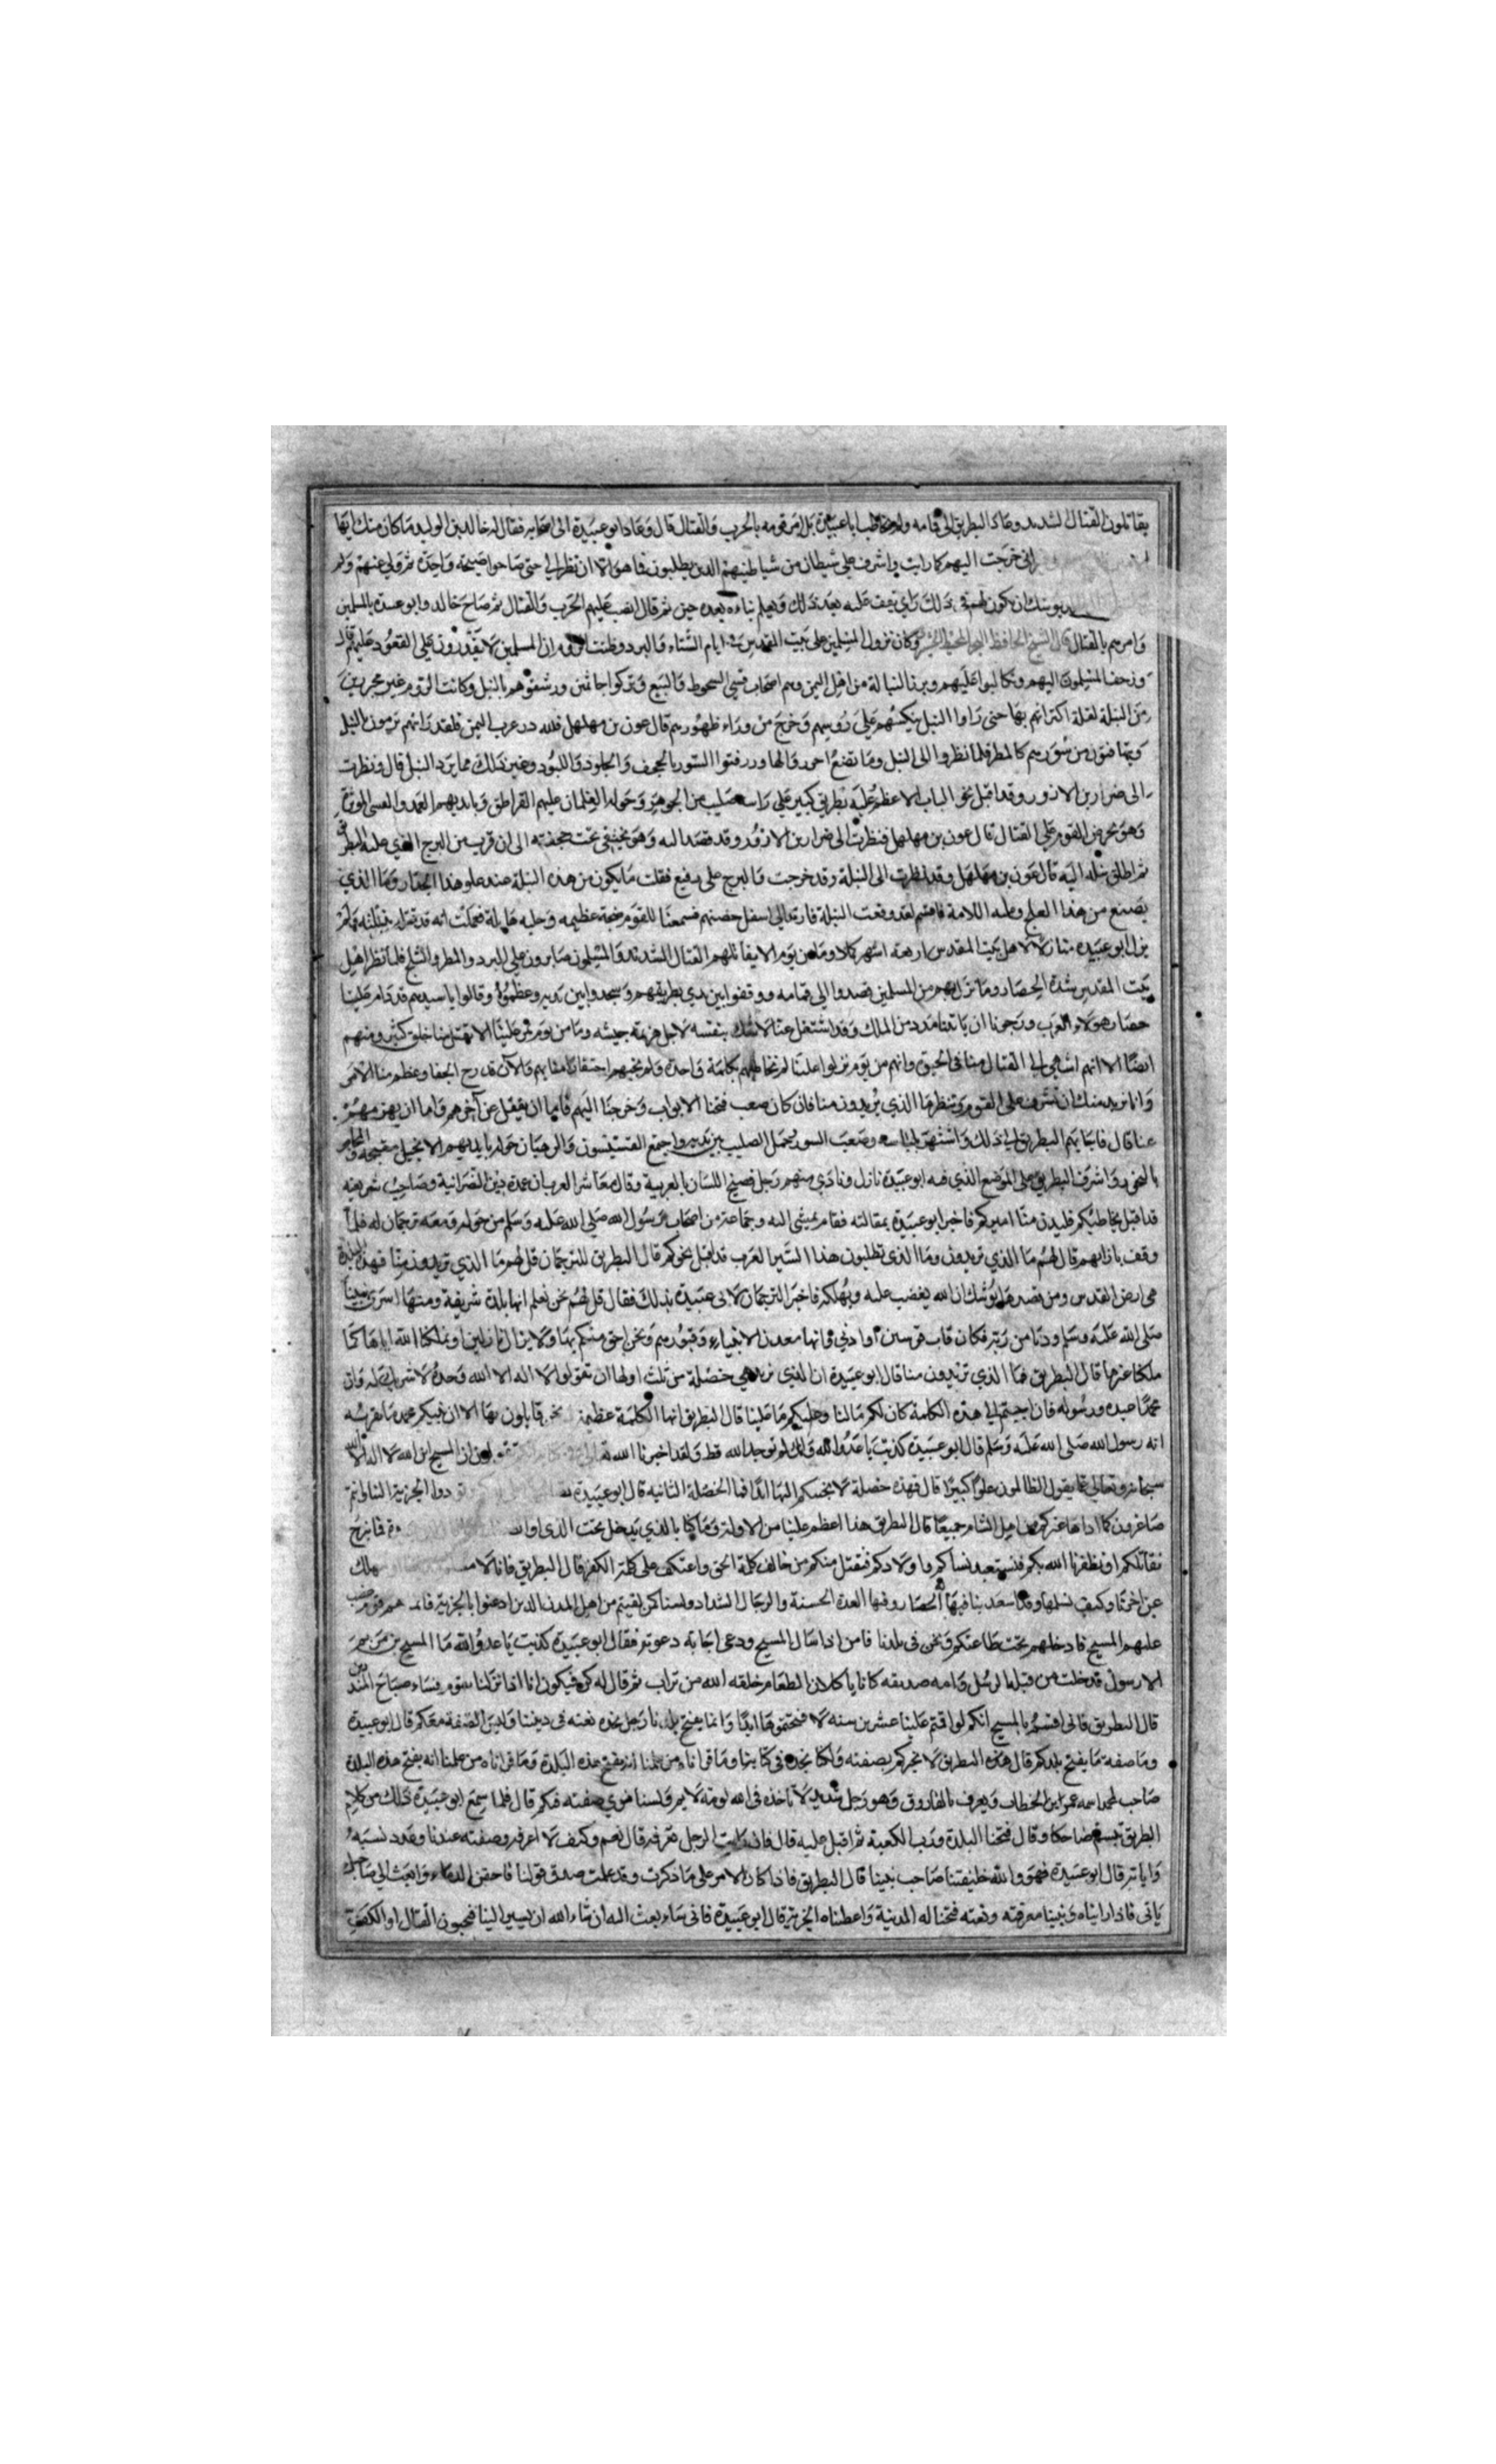 يقاتلون القتال الشديد وعاد البطريق الى قمامه ولم يخاطب ابا عبيدة بل امر قومه بالحرب والقتال قال وعاد ابو عبيدة الى اصحابه فقال له خالد بن الوليد ما كان منك ايها
اني خرجت اليهم كما رايت واشرف علي شيطان من شياطينهم الذين يطلبون فما هو الا ان نظر الي حتى صاحوا صيحة واحدة ثم ولي عنهم ولم
يوشك ان يكون لهم في ذلك راي نقف عليه بعد ذلك ونعلم بناءه بعد حين ثم قال انصب عليهم الحرب والقتال ثم صاح خالد وابو عبيدة بالمسلمين
وامرهم بالقتال قال وكان نزول المسلمين على بيت المقدس في ايام الشتاء والبرد وظنت الروم ان المسلمين لا يقدرون على القعود عليهم قال
وزحف المسلمون اليهم وتكالبوا عليهم وبرز النبالة من اهل اليمن وهم اصحاب قسي السحوط والنبع وتركوا جاثمين ورشقوهم بالنبل وكانت الروم غير محترزين
من النبلة لقلة اكتراثهم بها حتى راوا النبل ينكسهم على روسهم وخرج من وراء ظهورهم قال عون بن مهلهل فلله در عرب اليمن فلقد رايتهم يرمون بالنبل
ويتهافتون من سورهم كالمطر فلما نظروا الى النبل وما تصنع احرزوا لها وزرفنوا السور بالحجف والجلود واللبود وغير ذلك مما يرد النبل قال ونظرت
الى ضرار بن الازور وقد اقبل نحو الباب الاعظم عليه بطريق كبير على راسه صليب من الجوهر وحوله الغلمان عليهم القراطق وبايديهم العمد والقسي الموترة
وهو يحرض القوم على القتال قال عون بن مهلهل فنظرت الى ضرار بن الازور وقد قصد اليه وهو يختفي تحت حجفته الى ان قرب من البرج الذي عليه البطريق
ثم اطلق نبله اليه قال عون بن مهلهل وقد نظرت الى النبلة وقد خرجت والبرج على رفيع فقلت ما يكون من هذه النبلة عند علو هذا الجدار وما الذي
يصنع من هذا العلج وعليه اللامة فاقسم لقد وقعت النبلة فارتد الى اسفل حصنهم فسمعنا للقوم ضجة عظيمة وجلبة هايلة فعلمت انه قد قتله بنبلته ولم
يزل ابو عبيدة منازلا لاهل بيت المقدس اربعة اشهر كملا وما من يوم الا يقاتلهم القتال الشديد والمسلمون صابرون على البرد والمطر والثلج فلما نظر اهل
بيت المقدس شدة الحصار وما نزل بهم من المسلمين قصدوا الى قمامه ووقفوا بين يدي بطريقهم وسجدوا بين يديه وعظموه وقالوا يا سيدهم قد دام علينا
حصار هولاء العرب ورجونا ان ياتينا مدد من الملك وقد اشتغل عنا لا شك بنفسه لاجل هزيمة جيشه وما من يوم يمر علينا الا يقتل منا خلق كثير ومنهم
ايضا الا انهم اشهى الى القتال منا في الحيق وانهم من يوم نزلوا علينا لم نخاطبهم بكلمة واحدة ولم نجبهم احتقارا منا بهم والآن قد برح الخفا وعظم منا الامر
وانا نريد منك ان تشرف على القوم وتنظر ما الذي يريدون منا فان كان صعب فتحنا الابواب وخرجنا اليهم فاما ان نقتل عن آخرهم واما ان نهزمهم
عنا قال فاجابهم البطريق الى ذلك واشتهر بلباسه وصعب السور يحمل الصليب بين يديه واجتمع القسيسون والرهبان حوله بايديهم الانجيل مفتحة والمجامر
بالبخور واشرف البطريق على الموضع الذي فيه ابو عبيدة نازل ونادى منهم رجل فصيح اللسان بالعربية وقال معاشر العربان عمدة دين النصرانية وصاحب شريعته
قد اقبل يخاطبكم فليدن منا اميركم فاخبر ابو عبيدة بمقالته فقام يمشي اليه وجماعة من اصحاب رسول الله صلى الله عليه وسلم من حوله ومعه ترجمان له فلما
وقف بازائهم قال لهم ما الذي تريدون وما الذي تطلبون هذا امير العرب قد اقبل نحوكم قال البطريق للترجمان قل لهم ما الذي تريدون منا فهذه البلدة
هي ارض القدس ومن قصدها يوشك ان الله يغضب عليه ويهلكه فاخبر الترجمان لابي عبيدة بذلك فقال قل لهم نحن نعلم انها بلدة شريفة ومنها اسري نبينا
صلى الله عليه وسلم ودنا من ربه فكان قاب قوسين او ادنى وانها معدن الانبياء وقبورهم ونحن احق منكم بها ولا نزال نازلين او يملكنا الله اياها كما
ملكنا غيرها قال البطريق فما الذي تريدون منا قال ابو عبيدة ان الذي نريد هي خصلة من ثلث اولها ان تقولوا لا اله الا الله وحده لا شريك له وان
محمدا عبده ورسوله فان اجبتم الى هذه الكلمة كان لكم ما لنا وعليكم ما علينا قال البطريق انها الكلمة عظيمة نحن قايلون بها الا ان نبيكم محمد ما نقر بنبوته
انه رسول الله صلى الله عليه وسلم قال ابو عبيدة كذبت يا عدو الله وانك لم توحد الله قط ولقد اخبرنا الله تعالى تقولون ان المسيح ابن الله لا اله الا الله
سبحانه وتعالى عما يقول الظالمون علوا كبيرا قال فهذه خصلة لا نجيبكم اليها ابدا فما الخصلة الثانية قال ابو عبيدة دوا الجزية الينا وانتم
صاغرون كما اداها غيركم من اهل الشام جميعا قال البطريق هذا اعظم علينا من الاوله وما كنا بالذي يدخل تحت الذل
نقاتلكم او يظفرنا الله بكم فنستعبد نساكم واولادكم فنقتل منكم من خالف كلمة الحق واعتكف على كلمة الكفر قال البطريق فانا لا نهلك
عن اخرنا وكيف نسلمها وقد استعد بنا فيها آلة الحصار وفيها العدة الحسنة والرجال الشداد ولسنا كمن لقيتم من اهل المدن الذين اذعنوا بالجزية فانهم قوم غضب
عليهم المسيح فادخلهم تحت طاعتكم ونحن في بلدنا فامن اذا سال المسيح ودعى اجابة دعوته فقال ابو عبيدة كذبت يا عدو الله ما المسيح بن مريم
الا رسول قد خلت من قبله الرسل وامه صديقه كانا ياكلان الطعام خلقه الله من تراب ثم قال له كن فيكون انا اذا نزلنا بقوم فساء صباح المنذرين
قال البطريق فاني اقسم بالمسيح انكم لو اقمتم علينا عشرين سنه لا فتحتموها ابدا وانما يفتح بلدنا رجل نجد نعته في ديننا وليس الصفة معكم قال ابو عبيدة
وما صفة ما يفتح بلدكم قال هذه البطريق لا نخبركم بصفته ولكنا نجده في كتابنا وما قراناه من علمنا انه يفتح هذه البلدة وما قراناه من علمنا انه يفتح هذه البلدة
صاحب لمحمد اسمه عمر ابن الخطاب ويعرف بالفاروق وهو رجل شديد لا تاخذه في الله لومة لايم ولسنا نرى صفته فيكم قال فلما سمع ابو عبيدة ذلك من كلام
البطريق تبسم ضاحكا وقال فتحنا البلدة ورب الكعبة ثم اقبل عليه قال فان رايت الرجل تعرفه قال نعم وكيف لا اعرفه وصفته عندنا وعدد نسبه
واياته قال ابو عبيدة فهو والله خليفتنا صاحب نبينا قال البطريق فاذا كان الامر على ما ذكرت وقد علمت صدق قولنا فاحقن الدماء وابعث الى صاحبك
ياتي فاذا رايناه وتبينا معرفته ونعته فتحنا له المدينة واعطيناه الجزية قال ابو عبيدة فاني ساء بعث اليه ان شاء الله ان يسير الينا فتحبون القتال او الكف